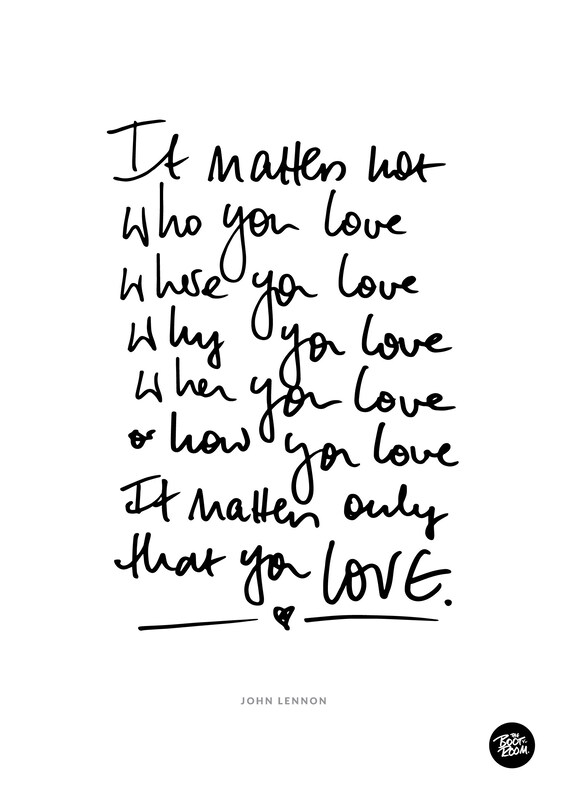 It matters not
who you love
where you love
Why you love
When you love
or how you love
It matters only
that you LOVE.
JOHN LENNON
THE
BOOT-
ROOM.